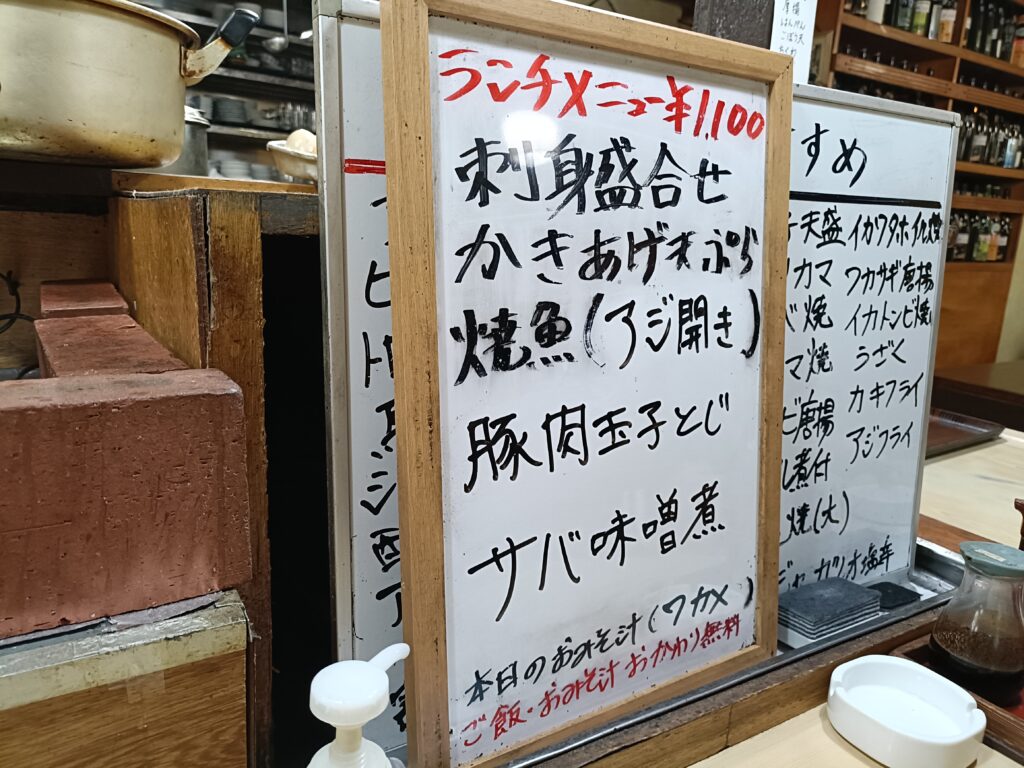 ランチメニュー ¥1,100
刺身盛合せ
かきあげ天ぷら
焼魚(アジ開き)
豚肉玉子とじ
サバ味噌煮
本日のおみそ汁(ワカメ)
ご飯・おみそ汁 おかわり無料
すめ
天盛
カマ
焼
マ焼
ビ唐揚
煮付
焼(大)
イカワタホイル焼
ワカサギ唐揚
イカトンビ焼
うざく
カキフライ
アジフライ
はんぺん
ごぼう天
ちくわ